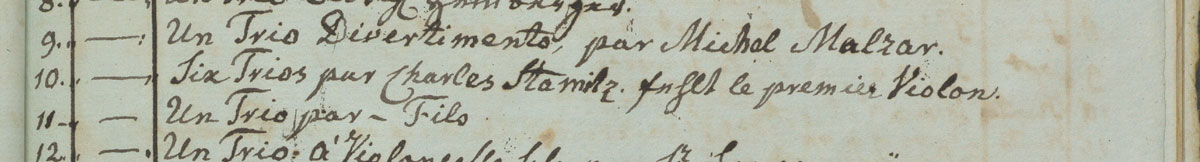 8.
9. — : Un Trio Divertimento, par Michel Malzar.
10. — : Six Trios par Charles Stamitz. fehlt le premier Violon.
11 — Un Trio par — Fils
12. — . Un Trio. á Violoncello